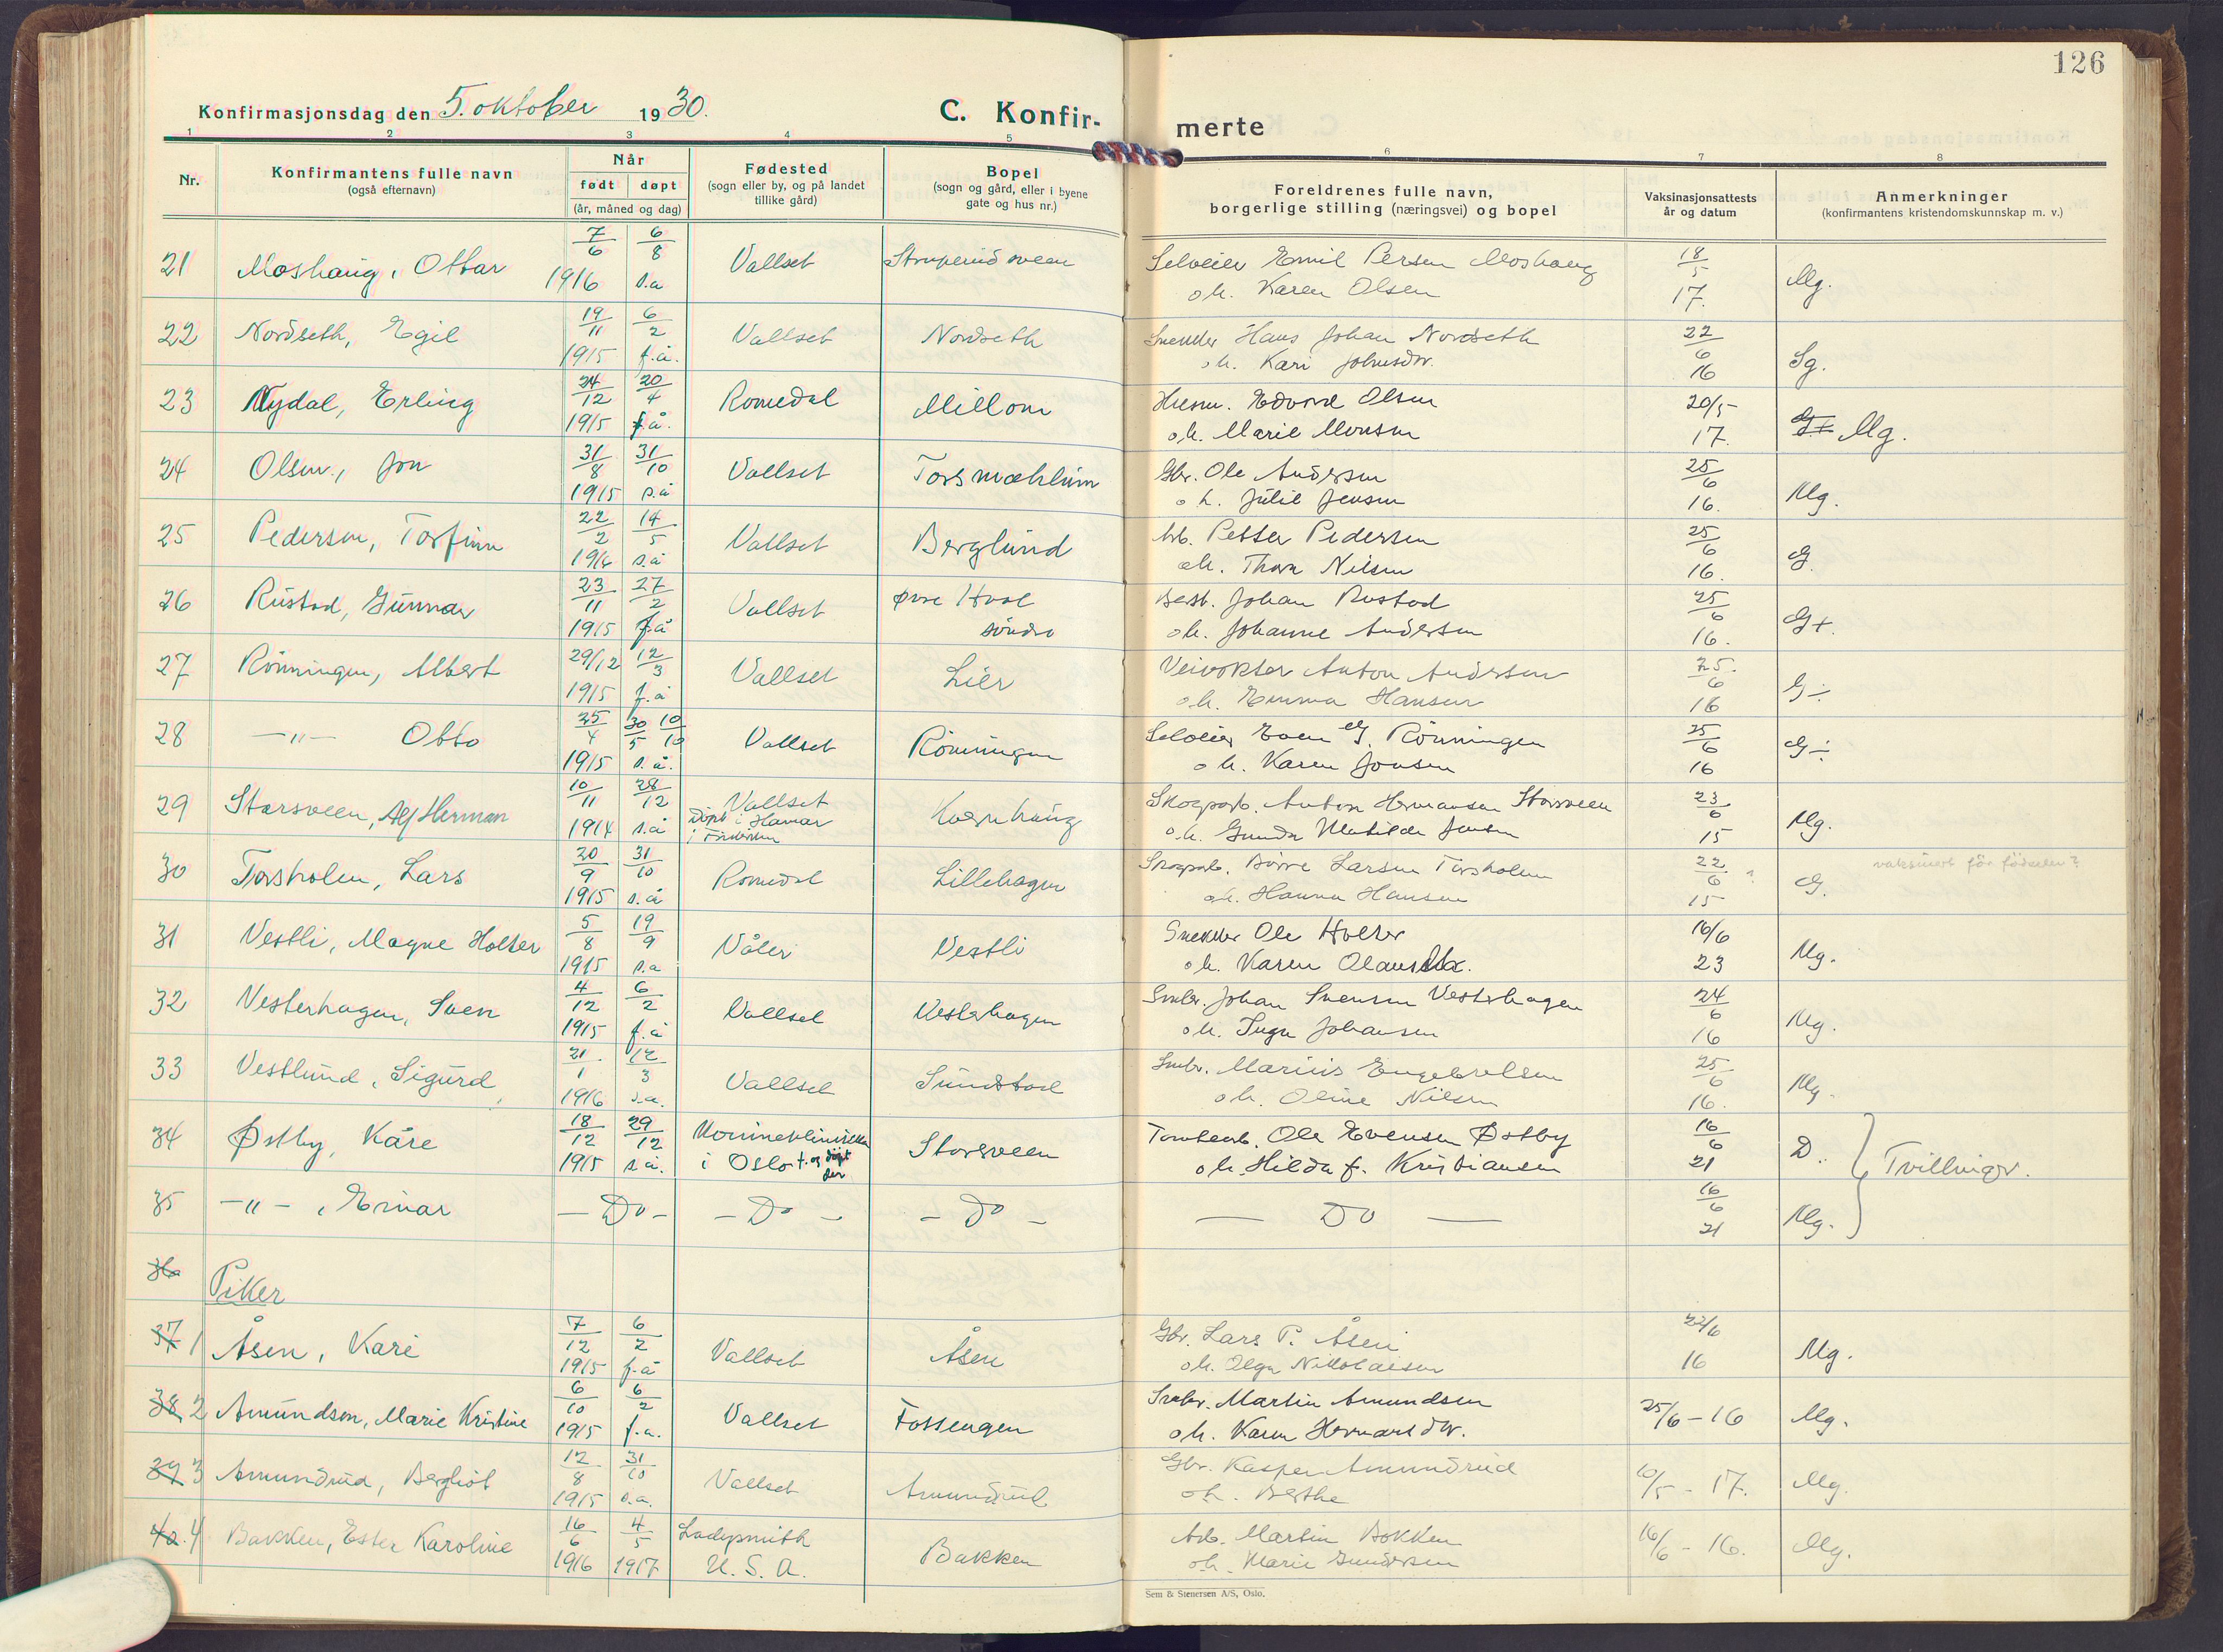 126
Konfirmasjonsdag den 5. oktober 1930.
C. Konfir-
merte
1 2 3 4 5 6 7 8
Nr.
Konfirmantens fulle navn
(også efternavn)
Når
født døpt
(år, måned og dag)
Fødested
(sogn eller by, og på landet
tillike gård)
Bopel
(sogn og gård, eller i byene
gate og hus nr.)
Foreldrenes fulle navn,
borgerlige stilling (næringsvei) og bopel
Vaksinasjonsattests
år og datum
Anmerkninger
(konfirmantens kristendomskunnskap m. v.)
21 Moshaug, Ottar 7/6 1916 6/8 s.a Vallset Struperudsveen Selveier Emil Persen Moshaug 18/5 17. Mg.
o h. Karen Olsen
22 Nordseth, Egil 19/11 1915 6/2 f.å. Vallset Nordseth Snekker Hans Johan Nordseth 22/6 16 Sg.
o h. Kari Johnsdtr.
23 Nydal, Erling 24/12 1915 20/4 f.å. Romedal Millom Husm. Edvard Olsen 20/5 17. G+ Mg.
o h. Marie Monsen
24 Olsen, Jon 31/8 1915 31/10 s.å Vallset Torsmæhlum Gbr. Ole Andersen 25/6 16. Mg.
o h. Julie Jensen
25 Pedersen, Torfinn 22/2 1916 14/5 s.å Vallset Berglund Arb. Petter Pedersen 25/6 16. G.
oh. Thora Nilsen
26 Rustad, Gunnar 23/11 1915 27/2 f.å Vallset Øvre Hval
søndre
Best. Johan Rustad 25/6 16. G+.
oh. Johanne Andersen
27 Rönningen, Albert 29/12 1915 12/3 f.å Vallset Lier Veivokter Anton Andersen 25/6 16 G÷
o h. Emma Hansen
28 —"— Otto 25/4 1915 30/5 10/10 s.å. Vallset Rönningen Selveier Even G. Rönningen 25/6 16 G÷
o h. Karen Jonsen
29 Storsveen, Alf Herman 10/11 1914 28/12 s.å Vallset
Döpt i Hamar
Kvernhaug Skogsarb. Anton Hermansen Storsveen 23/6 15 Mg.
o.h. Gunda Matilde Jensen
30 Torsholen, Lars 20/9 1915 31/10 s.å Romedal Lillehagen Skogsarb. Börre Larsen Torsholen 22/6 15 ? G. vaksinert för födselen?
oh. Hanna Hansen
31 Vestli, Magne Holter 5/8 1915 19/9 s.a Våler Vestli Snekker Ole Holter 16/6 23 Mg.
o h. Karen Olausdtr.
32 Vesterhagen, Sven 4/12 1915 6/2 f.å Vallset Vesterhagen Smbr. Johan Svensen Vesterhagen 24/6 16 Mg.
o h. Inga Johansen
33 Vestlund, Sigurd 21/1 1916 12/3 s.a. Vallset Sundstad Smbr. Marius Engebretsen 25/6 16. Mg.
o h. Oline Nilsen
34 Østby, Kåre 18/12 1915 29/12 s.å. Kvinneklinikken
i Oslo f. og döpt
der
Storsveen Tømterarb. Ole Evensen Østby 16/6 21 D. Tvillinger.
o h. Hilda f. Kristiansen
35 —"—, Einar — Do — — Do — — Do — — Do — 16/6 21 Mg.
36 Piker
37 1 Åsen, Kari 7/12 1915 6/2 f.å Vallset Åsen Gbr. Lars P. Åsen 22/6 16 Mg.
o h. Olga Nikolaisen
38 2 Amundsen, Marie Kristine 6/10 1915 6/2 f.a. Vallset Fossengen Smbr. Martin Amundsen 25/6 - 16 Mg.
o h. Karen Hermansdtr.
39 3 Amundrud, Bergliot 12/8 1915 31/10 s.a. Vallset Amundrud Gbr. Kasper Amundrud 10/5 - 17. Mg.
o h. Berthe
40. 4 Bakken, Ester Karoline 16/6 1916 4/5 1917 Ladysmith
U. S. A.
Bakken Arb. Martin Bakken 16/6 - 16. Mg.
o h. Marie Gundersen
Sem & Stenersen A/S, Oslo.